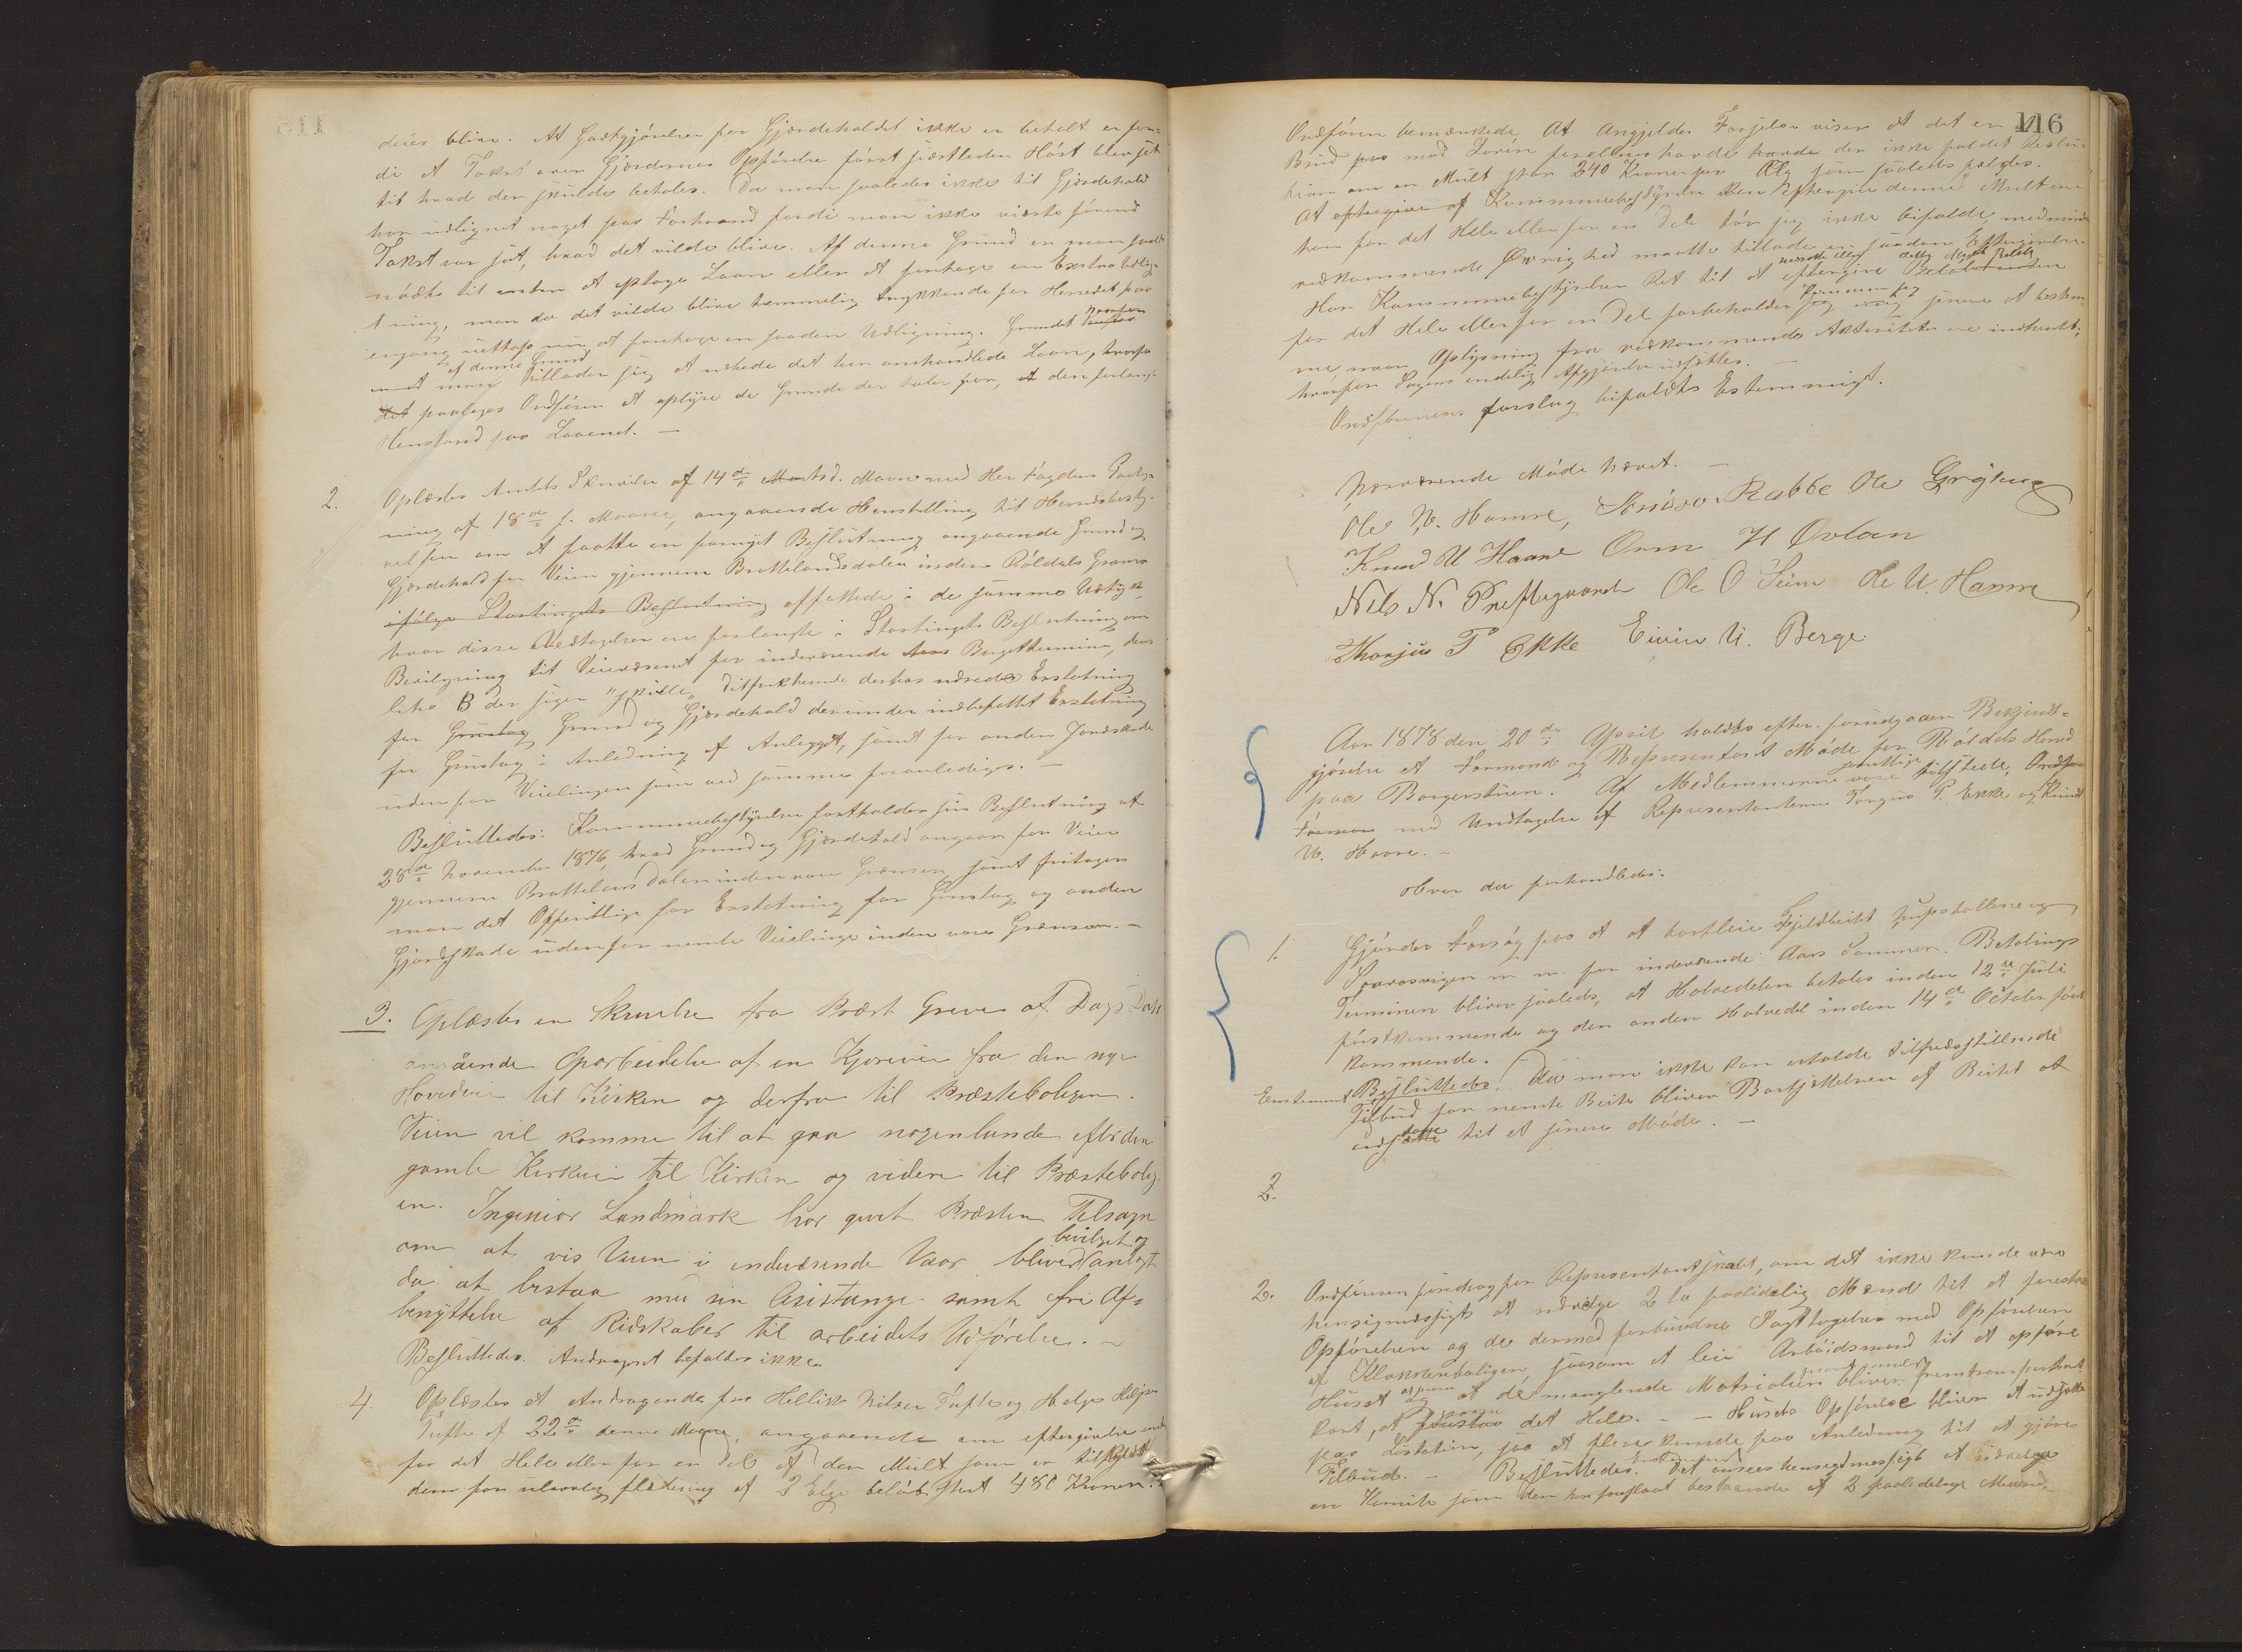 deres blive. At Godtgjørelsen for Gjærdeholdet ikke er betalt er for-
di at Takst over Gjærdernes Opførelse først sidstleden Høst blev sat
til hvad der skulde betales. Da man saaledes ikke til Gjærdehold
har udlignet noget paa Forhaand fordi man ikke vidste førend
Takst var sat, hvad det vilde blive. Af denne Grund er man saal.
nødt til enten at optage Laan eller at foretage en Extra Udlig-
ning, men da det vilde blive temmelig trykkende for Herredet paa
engang at foretage en saadan Udligning. Grundet
af denne Grund
man tillader sig at udbede det her omhandlede Laan, hvorfor
det paalægges Ordføren at oplyse de Grunde der taler for, at den forlang.
Henstand paa Laanet. —
2. Oplæstes Amtets Skrivelse af 14de d. Maan. med Her Fogdens Paateg-
ning af 18de s. Maane, angaaende Henstilling til Herredsbesty-
relsen om at fatte en fornyet Beslutning angaaende Grund og
Gjærdehold for Veien gjennem Brattelandsdalen inden Røldals Grænse
ifølge Stortingets Beslutning affattede i de samme Udtryk,
hvor disse Vedtagelser ere forlangte i Stortingets Beslutning om
Bevilgning til Veivæsenet for indeværende Budgettermine, dens
litra B der siger "specielle Distrikterne derhos udrede Erstatning
for Grustag Grund og Gjærdehold derunder indbefattet Erstatning
for Grustag i Anledning af Anlægget, samt for anden Jordskade
uden for Veielinien som ved samme foranlediges. —
Besluttedes: Kommunebestyrelsen fastholder sin Beslutning af
28de November 1876, hvad Grund og Gjærdehold angaar for Veien
gjennem Brattelandsdalen inden vore Grænser samt fritager
man det Offentlige for Erstatning for Grustag og anden
Gjærdskade udenfor nemte Veielinge inden vore Grænser. —
3. Oplæstes en Skrivelse fra Præst Greve af Dags Dato
angående Oparbeidelse af en Kjørevei fra den nye
Hovedvei til Kirken og derfra til Præsteboligen.
Veien vil komme til at gaa nogenlunde efter den
gamle Kirkevei til Kirken og videre til Præstebolig-
en. Ingeniør Landmark har givet Præsten Tilsagn
om at vis Veien i indeværende Vaar bliver bevilget og anlagt
da at bistaa med sin Asistange samt fri Af-
benyttelse af Ridskaber til arbeidets Udførelse. —
Besluttedes. Andraget bifaldes ikke.
4. Oplæstes et Andragende fra Hellik Nilsen Tufte og Helge Helgesen
Tufte af 22de denne Maane, angaaende om eftergivelse enten
for det Hele eller for en Del af den Mult som er tilkjendt
dem for ulovlig flældning af 2 Elge beløb stort 480 Kroner.
116
Ordføren bemærkede, At angjeldes Forseelse viser at det er et
Brud paa mod Loven forelleves havde der ikke faldet Resolu-
tion om en Mult stor 240 Kroner for Elg som saaleds fældes.
At eftergive af Kommunebestyrelsen den Eftergive denne Multen
ham for det Hele eller for en Del tør jeg ikke bifalde, medmindre
vedkommende Øvrighed maatte tillade en saadan Eftergivelse.
Har Kommunebestyrelsen Ret til at eftergive Beløb
for det Hele eller for en Del forbeholder jeg senere at bestem-
me, naar Oplysning fra vedkommende Aktoriteter ere indhentt,
hvorfor Sagens endelig Afgjørelse udsættes. —
Ordførerens forslag bifaldtes Enstemmigt.
Nærværende Møde hævet. —
Ole N. Hamre, Sniaro. Rabbe Ole Grytnng
Knud U Haare Orm H Øvlan
Nils N. Prestegaard Ole O Seim Ole U. Hamre
Thorjus T Ekke Eivin U. Berge
Aar 1878 den 20de April holdtes efter forudgaaen Bekjendt-
gjørelse et Formand og Representant Møde for Røldals Herred
paa Borgerstuen. Af Medlemmerne vare samtlige tilstede,
med Undtagelse af Representanterne Torgius T. Ekke og Knud
U. Haare. —
Hvor da forhandledes:
1. Gjordes Forsøg paa at at bortleie Fjeldbeitet og
m. m. for indeværende Aars Sommer. Betalings
Terminen bliver saaleds, at Halvedelen betales inden 12te Juli
førstkommende og den anden Halvedel inden 14de October først
kommende.
Enstemmet Besluttedes. Da man ikke kan erholde tilfredsstillende
Tilbud for nemte Beite bliver Bortsættelsen af Beitet at
udsætte til et senere Møde. —
2.
2. Ordføreren foredrog for Representantskabet, om det ikke kunde være
hensigmæssigt at udvælge 2 to paalidelig Mænd til at forestaa
Opførelsen og de dermed forbundne Iagttagelser med Opførelsen
af Klokkerboligen, saasom at leie Arbeidsmænd til at opføre
Huset og at de manglende Matrialier bliver fremtransporteret
kort, at det Hele. — — Husets Opførelse bliver at udsætte
paa Lisitation, saa at flere kunde faa Anledning til at gjøre
Tilbud. — Besluttedes. Enstemmig Det ansees hensigtmessigt at udvælge
en Komite som den her foreslaaet bestaaende af 2 paalidelige Mænd,